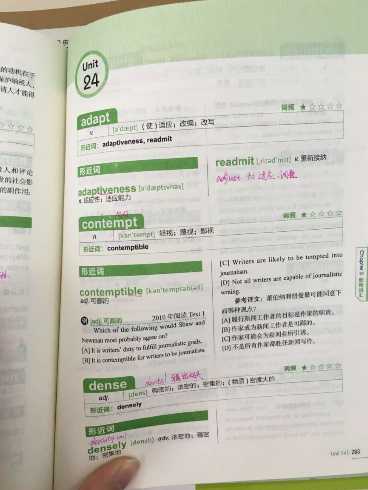 的动机在于
保护输液人,
请人才能得
人和评论
的社会影
的副作用:
Unit
24
adapt
词频 ★☆☆☆☆
v. [ə'dæpt] (使)适应;改编;改写
形近词: adaptiveness, readmit
形近词
readmit [ˌriːəd'mɪt] v. 重新接纳
adjust to 适应,调整
adaptiveness [ə'dæptɪvnəs]
n. 适应性;适应能力
contempt
词频 ★☆☆☆☆
n. [kən'tempt] 轻视;蔑视;鄙视
形近词: contemptible
形近词
contemptible [kən'temptəb(ə)l]
adj. 可鄙的
adj. 可鄙的 2010 年阅读 Text 1
Which of the following would Shaw and
Newman most probably agree on?
[A] It is writers' duty to fulfill journalistic goals.
[B] It is contemptible for writers to be journalists.
[C] Writers are likely to be tempted into
journalism.
[D] Not all writers are capable of journalistic
writing.
参考译文:萧伯纳和纽曼可能同意下
面哪种观点?
[A] 履行新闻工作者的目标是作家的职责。
[B] 作家成为新闻工作者是可鄙的。
[C] 作家可能会为新闻业所引诱。
[D] 不是所有作家都胜任新闻写作。
dense
词频 ★☆☆☆☆
adj. [dens] 稠密的;浓密的;密集的;(物质)密度大的
形近词: densely
形近词
densely [densli] adv. 浓密地;稠密
地;密集地
Unit 24 | 283